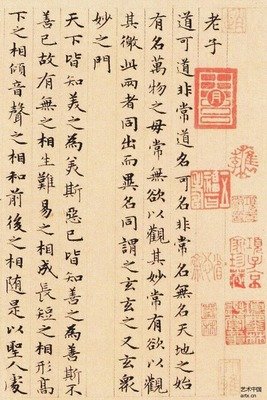 老子
道可道非常道名可名非常名無名天地之始
有名萬物之母常無欲以觀其妙常有欲以觀
其徼此兩者同出而異名同謂之玄玄之又玄衆
妙之門
天下皆知美之為美斯惡已皆知善之為善斯不
善已故有無之相生難易之相成長短之相形高
下之相傾音聲之相和前後之相隨是以聖人處
項子京家珍藏
艺术中国
artx.cn